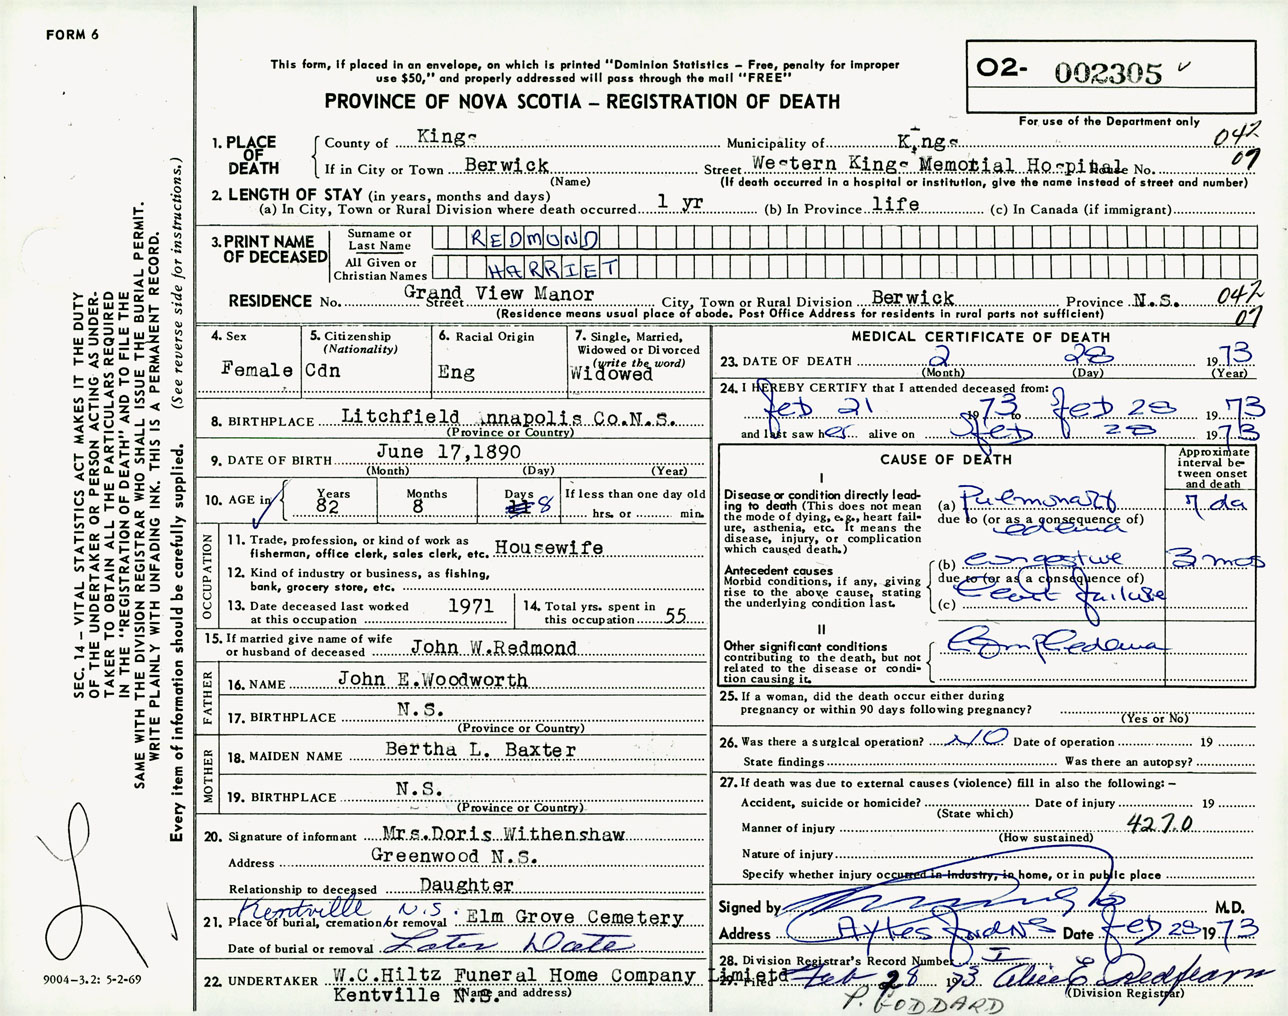 FORM 6
This form, if placed in an envelope, on which is printed "Dominion Statistics – Free, penalty for improper
use $50," and properly addressed will pass through the mail "FREE"
PROVINCE OF NOVA SCOTIA – REGISTRATION OF DEATH
O2- 002305
For use of the Department only
1. PLACE OF DEATH
County of Kings Municipality of Kings 042
If in City or Town Berwick Street Western Kings Memorial Hospital House No. 07
(Name) (If death occurred in a hospital or institution, give the name instead of street and number)
2. LENGTH OF STAY (in years, months and days)
(a) In City, Town or Rural Division where death occurred 1 yr (b) In Province life (c) In Canada (if immigrant)
3. PRINT NAME OF DECEASED
Surname or Last Name REDMOND
All Given or Christian Names HARRIET
RESIDENCE No. Street Grand View Manor City, Town or Rural Division Berwick Province N.S. 042
(Residence means usual place of abode. Post Office Address for residents in rural parts not sufficient) 07
4. Sex
Female
5. Citizenship
(Nationality)
Cdn
6. Racial Origin
Eng
7. Single, Married,
Widowed or Divorced
(write the word)
Widowed
8. BIRTHPLACE Litchfield Annapolis Co.N.S.
(Province or Country)
9. DATE OF BIRTH June 17,1890
(Month) (Day) (Year)
10. AGE in
Years Months Days If less than one day old
82 8 8 hrs. or min.
OCCUPATION
11. Trade, profession, or kind of work as
fisherman, office clerk, sales clerk, etc. Housewife
12. Kind of industry or business, as fishing,
bank, grocery store, etc.
13. Date deceased last worked
at this occupation 1971
14. Total yrs. spent in
this occupation 55
15. If married give name of wife
or husband of deceased John W.Redmond
FATHER
16. NAME John E.Woodworth
17. BIRTHPLACE N.S.
(Province or Country)
MOTHER
18. MAIDEN NAME Bertha L. Baxter
19. BIRTHPLACE N.S.
(Province or Country)
20. Signature of informant Mrs.Doris Withenshaw
Address Greenwood N.S.
Relationship to deceased Daughter
Kentville N.S.
21. Place of burial, cremation/or removal Elm Grove Cemetery
Date of burial or removal Later Date
22. UNDERTAKER W.C.Hiltz Funeral Home Company Limietd
Kentville N.S.
(Name and address)
MEDICAL CERTIFICATE OF DEATH
23. DATE OF DEATH 2 28 1973
(Month) (Day) (Year)
24. I HEREBY CERTIFY that I attended deceased from:
Feb 21 1973 to Feb 28 1973
and last saw her alive on Feb 28 1973
CAUSE OF DEATH
Approximate
interval be-
tween onset
and death
I
Disease or condition directly lead-
ing to death (This does not mean
the mode of dying, e.g., heart fail-
ure, asthenia, etc. It means the
disease, injury, or complication
which caused death.)
(a) Pulmonary 7 da
due to (or as a consequence of)
edema
Antecedent causes
Morbid conditions, if any, giving
rise to the above cause, stating
the underlying condition last.
(b) congestive 3 mos
due to (or as a consequence of)
heart failure
(c)
II
Other significant conditions
contributing to the death, but not
related to the disease or condi-
tion causing it.
25. If a woman, did the death occur either during
pregnancy or within 90 days following pregnancy?
(Yes or No)
26. Was there a surgical operation? NO Date of operation 19
State findings Was there an autopsy?
27. If death was due to external causes (violence) fill in also the following: –
Accident, suicide or homicide? Date of injury 19
(State which)
Manner of injury 427.0
(How sustained)
Nature of injury
Specify whether injury occurred in industry, in home, or in public place
Signed by M.D.
Address Aylesford NS Date Feb 28 1973
28. Division Registrar's Record Number 1
29. Filed Feb 28 1973 Alice E.
(Division Registrar)
P. GODDARD
SEC. 14 – VITAL STATISTICS ACT MAKES IT THE DUTY
OF THE UNDERTAKER OR PERSON ACTING AS UNDER-
TAKER TO OBTAIN ALL THE PARTICULARS REQUIRED
IN THE "REGISTRATION OF DEATH" AND TO FILE THE
SAME WITH THE DIVISION REGISTRAR WHO SHALL ISSUE THE BURIAL PERMIT.
WRITE PLAINLY WITH UNFADING INK. THIS IS A PERMANENT RECORD.
Every item of information should be carefully supplied. (See reverse side for instructions.)
9004-3.2: 5-2-69